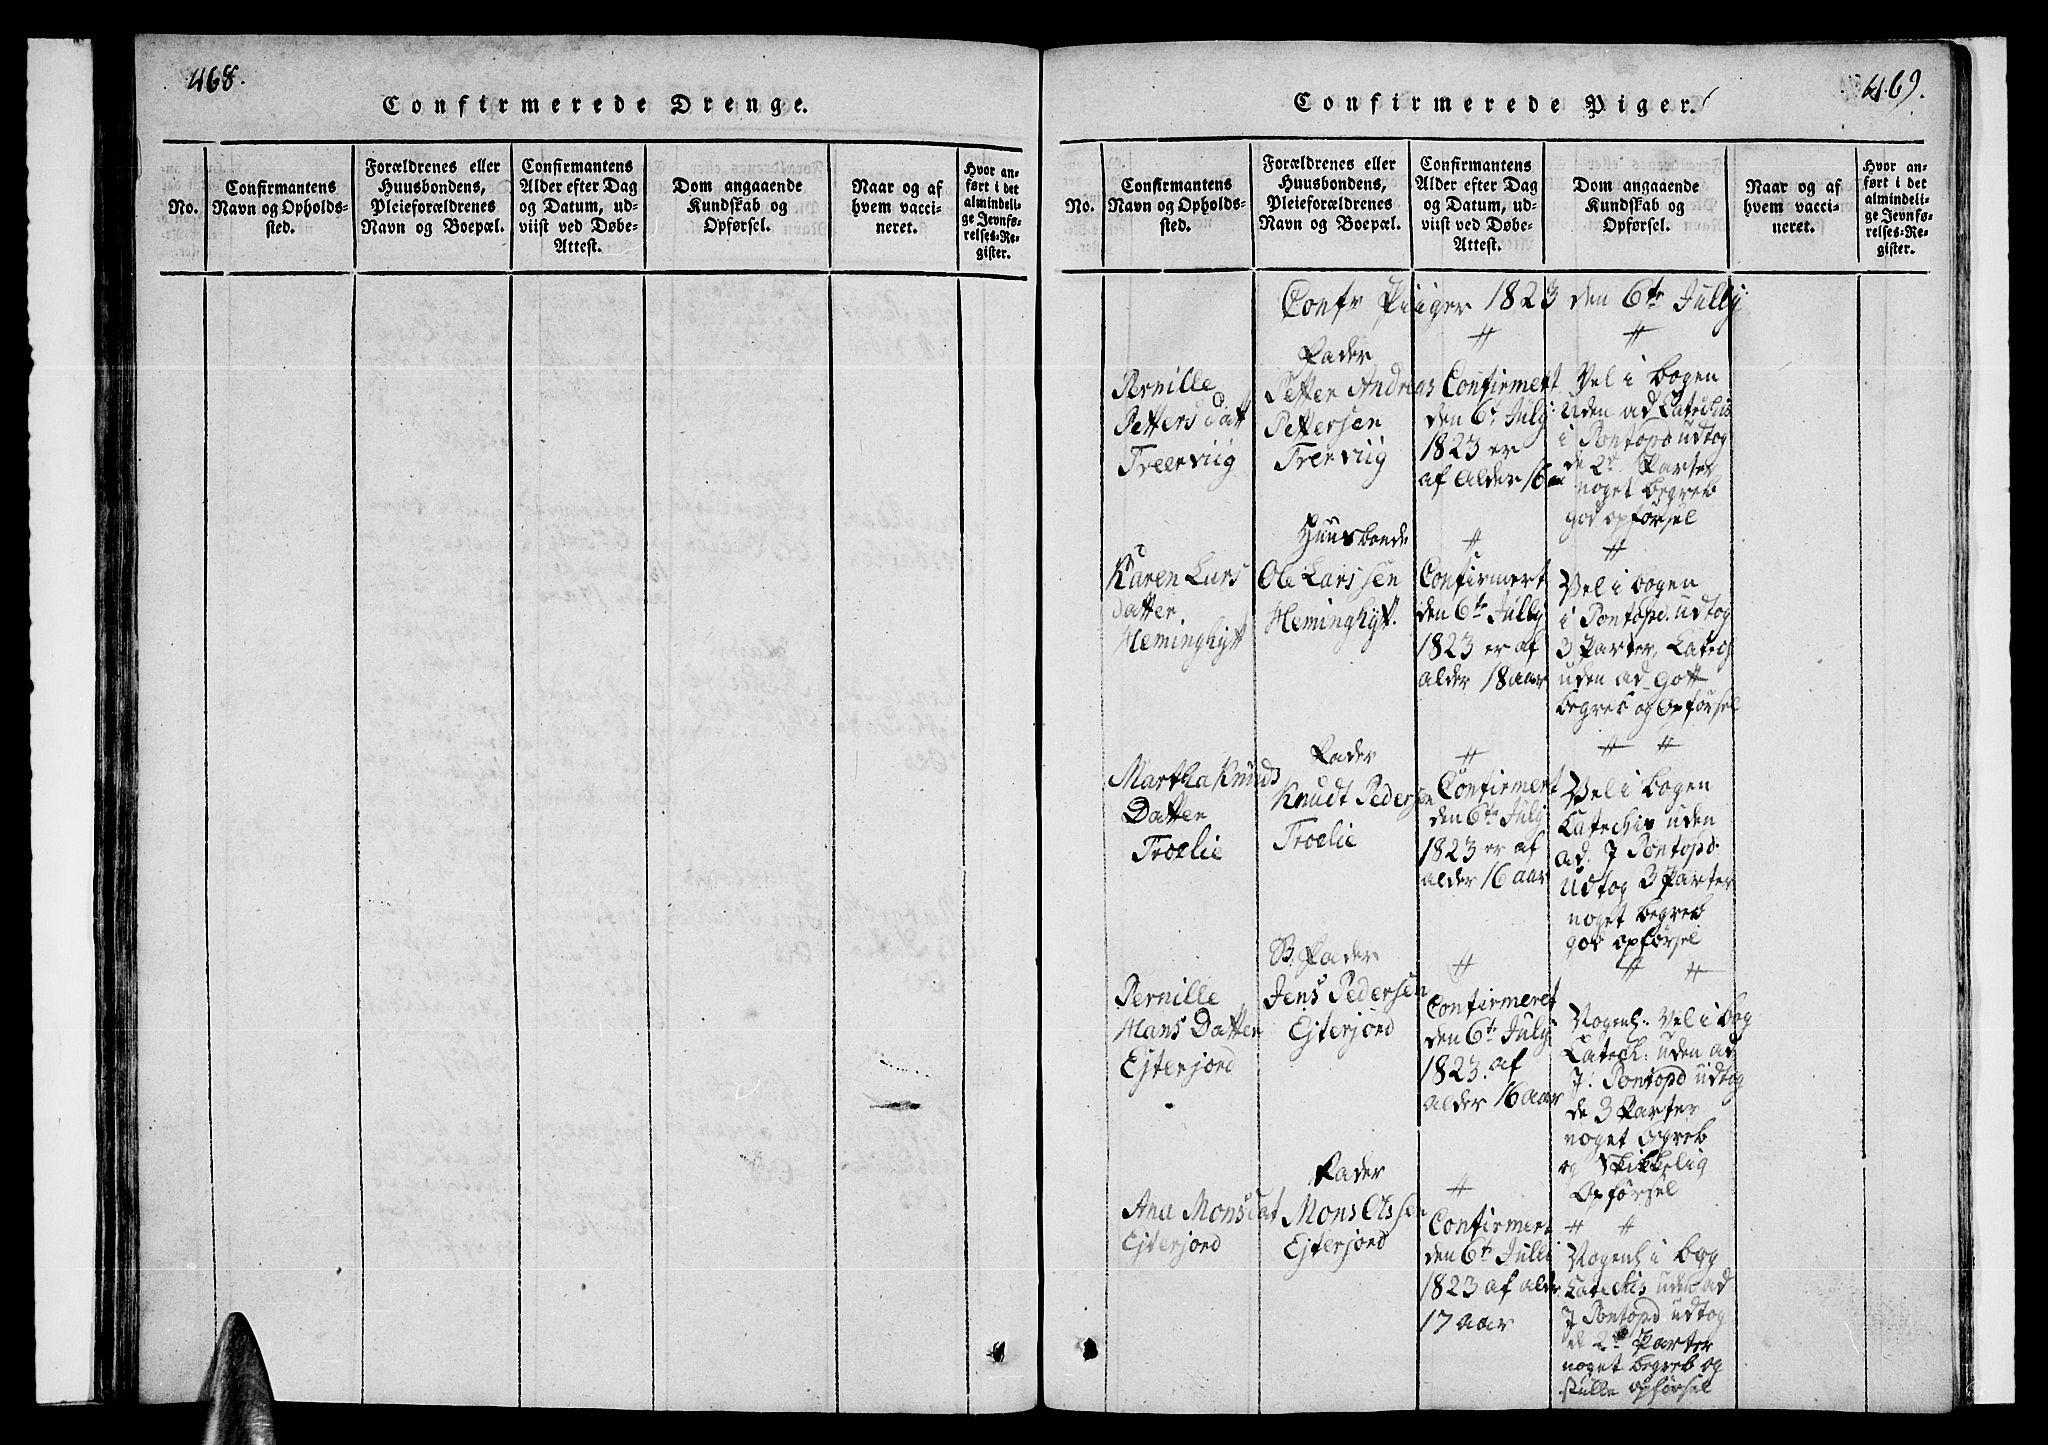 468.
Confirmerede Drenge.
No.
Confirmantens
Navn og Opholds-
sted.
Forældrenes eller
Huusbondens,
Pleieforældrenes
Navn og Boepæl.
Confirmantens
Alder efter Dag
og Datum, ud-
viist ved Døbe-
Attest.
Dom angaaende
Kundskab og
Opførsel.
Naar og af
hvem vacci-
neret.
Hvor an-
ført i det
almindeli-
ge Jevnfø-
relses-Re-
gister.
469.
Confirmerede Piger.
No.
Confirmantens
Navn og Opholds-
sted.
Forældrenes eller
Huusbondens,
Pleieforældrenes
Navn og Boepæl.
Confirmantens
Alder efter Dag
og Datum, ud-
viist ved Døbe-
Attest.
Dom angaaende
Kundskab og
Opførsel.
Naar og af
hvem vacci-
neret.
Hvor an-
ført i det
almindeli-
ge Jevnfø-
relses-Re-
gister.
Confr Piiger 1823 den 6te Jully
Pernille
Petters Datt
Treerviig
Fader
Petter Andreas
Pettersen
Trerviig
Confirmert
den 6te July
1823 er
af Alder 16
Vel i bogen
uden ad Catechis
i Pontopd udtog
de 2de Parter
noget begreb
god opførsel
Karen Lars
Datter
Heminghytt
Huusbonde
Ole Larssen
Heminghytt.
Confirmert
den 6te Jully
1823 er af
alder 18 aar
Vel i bogen
i Pontopd. udtog
3 Parter, Catech
uden ad Gott
begreb og Opførsel
Martha Knuds
Datter
Troelie
Fader
Knudt Pedersen
Troelie
Confirmert
den 6te July
1823 er af
alder 16 aar
Vel i bogen
Catechis uden
ad. J Pontopd.
udtog 3 Parter
noget begreb
god opførsel
Pernille
Hans Datter
Ejterjord
B. Fader
Jens Pedersen
Ejterjord
Confirmeret
den 6te July
1823. af
alder 16 aar
Nogenl: Vel i bog
Catech: uden ad
J: Pontopd udtog
de 3 Parter
noget begreb
og skikkelig
Opførsel
Ana Monsdat
Ejterjord
Fader
Mons Olssen
Ejterjord
Confirmert
den 6te Julii
1823 af alder
17 aar
Nogenl i bog
Catechis uden ad
J Pontopd udtog
de 2de Parter
noget begreb og
stille opførsel